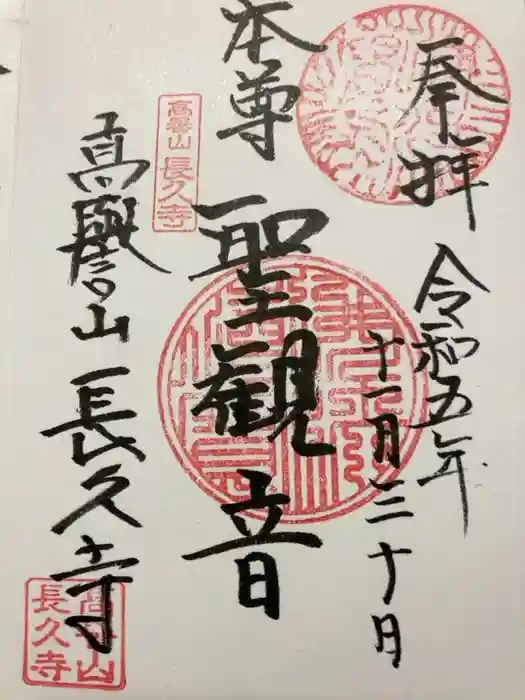 奉拝
令和五年
十一月三十日
本尊
聖観音
高譽山
長久寺
高譽山 長久寺
高譽山
長久寺